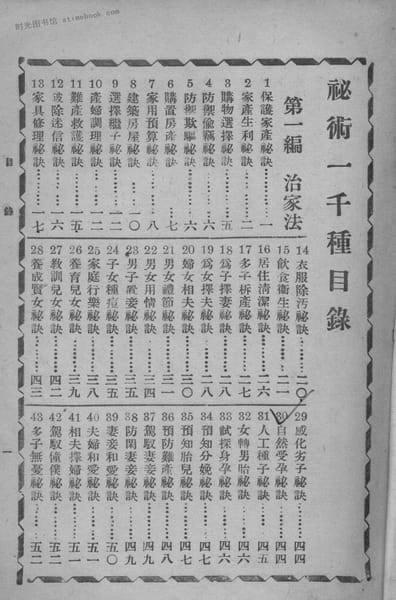 时光图书馆 atimebook.com
祕術一千種目錄
第一編 治家法
1 保護家產祕訣…………一
2 家產生利祕訣…………二
3 購物選擇祕訣…………五
4 防禦偷竊祕訣…………六
5 防禦欺騙祕訣…………六
6 購置房產祕訣…………七
7 家用預算祕訣…………八
8 建築房屋祕訣…………一〇
9 選擇穩子祕訣…………一二
10 產婦調理祕訣…………一二
11 難產救護祕訣…………一五
12 破除迷信祕訣…………一六
13 家具修理祕訣…………一七
14 衣服除污祕訣…………二〇
15 飲食衛生祕訣…………二一
16 居住清潔祕訣…………二六
17 多子析產祕訣…………二八
18 爲子擇妻祕訣…………二八
19 爲女擇夫祕訣…………二八
20 婦女相夫祕訣…………三〇
21 男女禮節祕訣…………三一
22 男女用情祕訣…………三四
23 男子置妾祕訣…………三五
24 子女種痘祕訣…………三五
25 家庭行樂祕訣…………三八
26 養育兒女祕訣…………三九
27 教訓兒女祕訣…………四二
28 養成賢女祕訣…………四三
29 感化劣子祕訣…………四四
30 自然受孕祕訣…………四四
31 人工種子祕訣…………四五
32 女轉男胎祕訣…………四六
33 試探身孕祕訣…………四六
34 預知分娩祕訣…………四七
35 預知胎兒祕訣…………四七
36 預防難產祕訣…………四八
37 駕馭妻妾祕訣…………四九
38 防閑妻妾祕訣…………四九
39 妻妾和愛祕訣…………五〇
40 夫婦和愛祕訣…………五一
41 相夫擇婦祕訣…………五一
42 駕馭僮僕祕訣…………五二
43 多子無憂祕訣…………五二
目錄
一